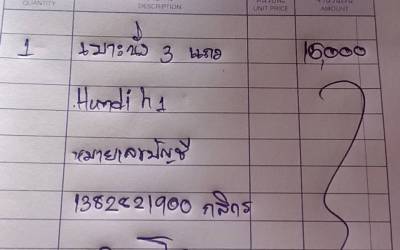 QUANTITY DESCRIPTION UNIT PRICE AMOUNT
1 เบาะนั่ง 3 แถว 16,000
Hundi h1
หมายเลขบัญชี
1382421900 กสิกร